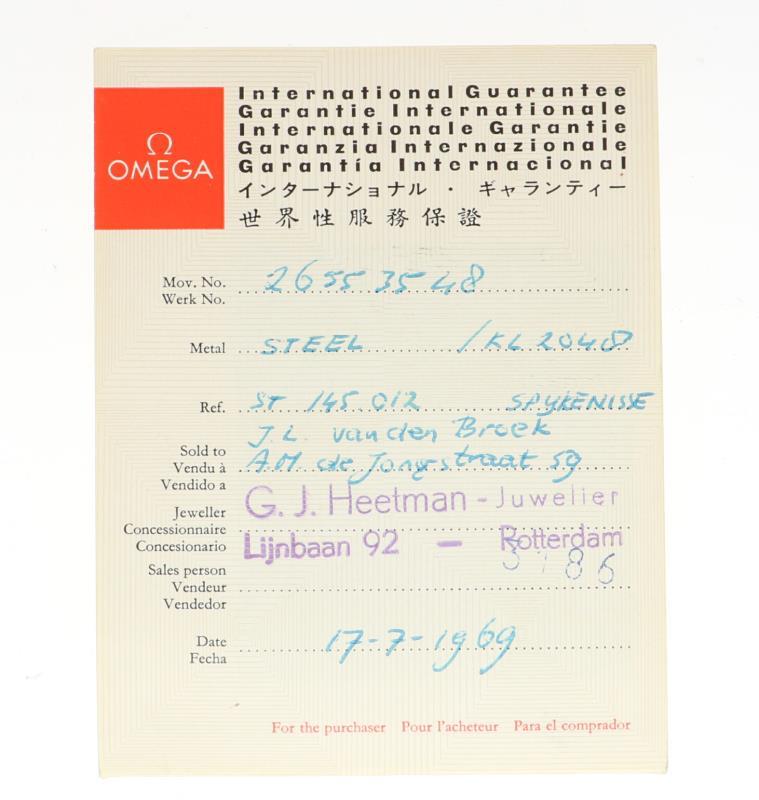 Ω
OMEGA
International Guarantee
Garantie Internationale
Internationale Garantie
Garanzia Internazionale
Garantía Internacional
インターナショナル・ギャランティー
世界性服務保證
Mov. No. 26553548
Werk No.
Metal STEEL /KL 2048
Ref. ST 145.012 SPYKENISSE
J.L. van den Broek
Sold to
Vendu à A.M. de Jongstraat 59
Vendido a
Jeweller G. J. Heetman - Juwelier
Concessionnaire
Concesionario Lijnbaan 92 - Rotterdam
Sales person
Vendeur
Vendedor
Date 17-7-1969
Fecha
For the purchaser Pour l'acheteur Para el comprador